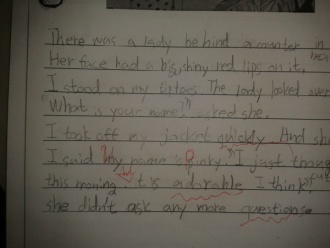 There was a lady behind a counter in
Her face had a big, shiny red lips on it.
I stood on my tiptoes. The lady looked over
"What is your name?" asked she.
I took off my jacket quickly. And she
I said "My name is Pinky." I just
this moning. It is adorable I think
she didn't ask any more questions